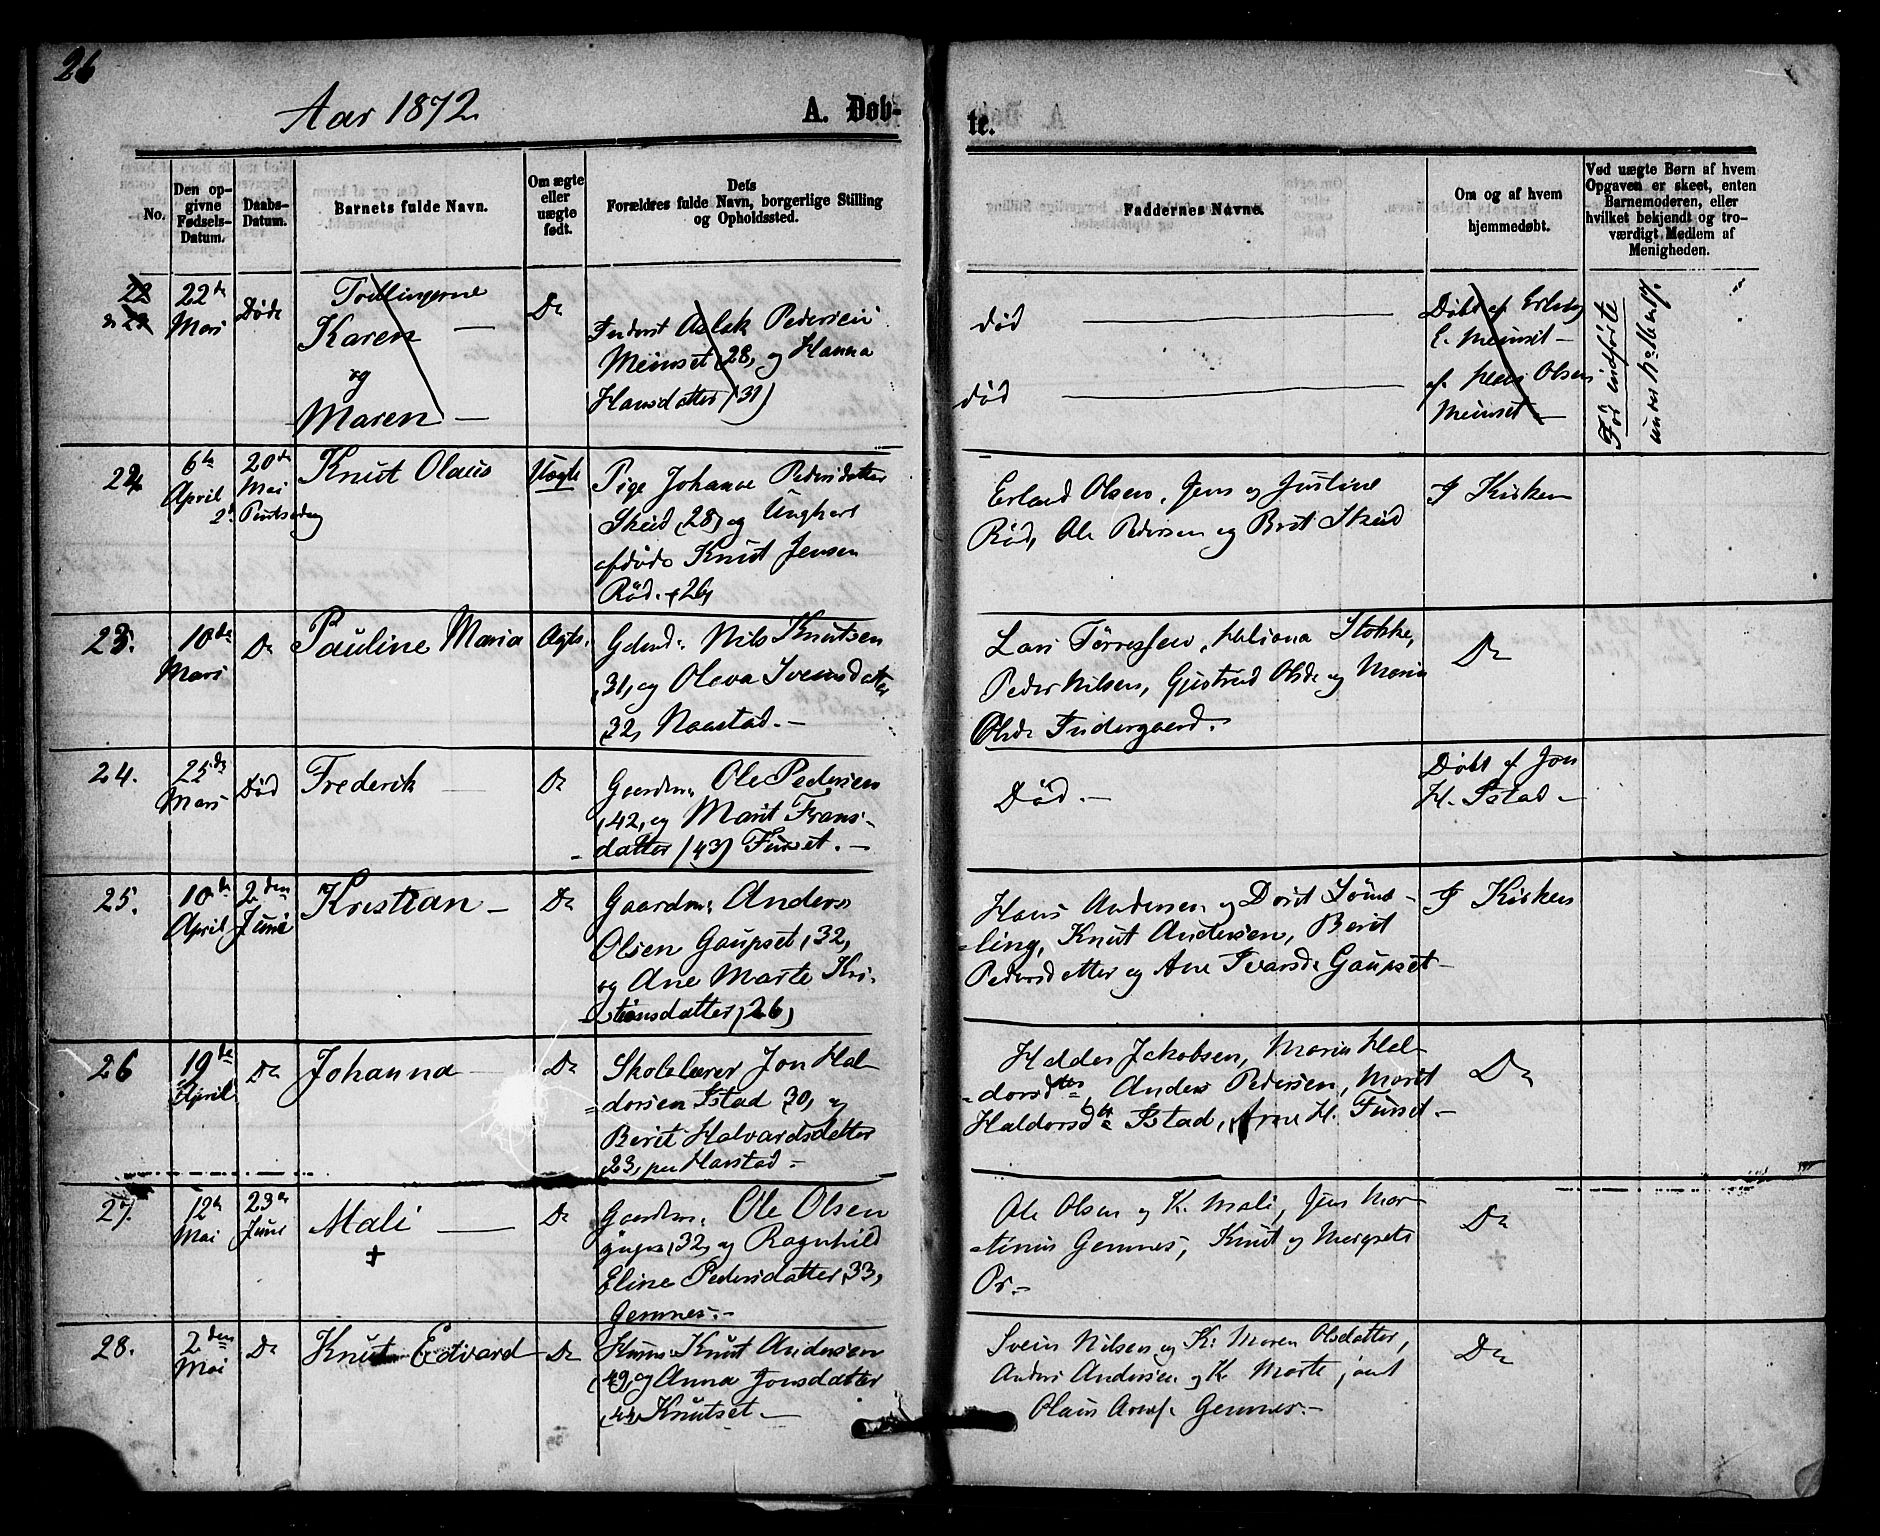 26
Aar 1872.
A. Døb-
te.
No.
Den op-
givne
Fødsels-
Datum.
Daabs-
Datum.
Barnets fulde Navn.
Om ægte
eller
uægte
født.
Dets
Forældres fulde Navn, borgerlige Stilling
og Opholdssted.
Faddernes Navne.
Om og af hvem
hjemmedøbt.
Ved uægte Børn af hvem
Opgaven er skeet, enten
Barnemoderen, eller
hvilket bekjendt og tro-
værdigt Medlem af
Menigheden.
22
22de
Mars
Døde
Tvillingerne
Karen —
og
Maren —
Do
Inderst Aslak Pedersen
Meinset, 28, og Hanna
Hansdatter (31)
død
død
Døbt af Erland
E. Meinset —
af Peder Olsen
Meinset —
Før indførte
under No
22.
6te
April
20de
Mai
2. Pintsedag
Knut Olaus
Uægte
Pige Johanne Pedersdatter
Skeid (28) og Ungkarl
afdøde Knut Jensen
Rød. (26)
Erland Olsen, Jens og Justine
Rød, Ole Pedersen og Brit Skeid
I Kirken
23.
10de
Mars
Do
Pauline Maria
Ægte.
Gdmd: Nils Knutsen
31, og Oleva Svensdatter
32, Naastad. —
Lars Tørresen, Stokke,
Peder Nilsen, Gjertrud Olsdr og Maria
Olsdr Indergaard.
Do
24.
25de
Mars
Død
Frederik
Do
Gaardm: Ole Pedersen
42, og Marit Frans-
datter (43) Furset. —
Død. —
Døbt af Jon
H. Istad —
25.
10de
April
2den
Juni
Kristian —
Do
Gaardm: Anders
Olsen Gaupset, 32,
og Ane Marte Kri-
stiansdatter, 26,
Hans Andersen og Dorit Løms-
ling, Knut Andersen, Berit
Pedersdatter og Ane Ivarsdr Gaupset —
I Kirken
26
19de
April
Do
Johanna
Do
Skolelærer Jon Hal-
dorsen Istad 30, og
Berit Halvardsdatter
23, Harstad —
Halder Jakobsen, Maria Hal-
dorsdtr, Anders Pedersen, Marit
Haldorsdtr Istad, Arne H. Furset —
Do
27.
12te
Mai
23de
Juni
Mali
+
Do
Gaardm: Ole Olsen
32, og Ragnhild
Eline Pedersdatter 33,
Gemnes. —
Ole Olsen og K. Mali, Jens Mar-
tinus Gemnes, Knut og Margrete
Or. —
Do
+
28.
2den
Mai
Do
Knut Edvard
Do
Huusm: Knut Andersen
(49) og Anna Jonsdatter
(44) Knutset —
Svein Nilsen og K: Maren Olsdatter,
Anders Andersen og K Marte, samt
Olaus Gemnes. —
Do